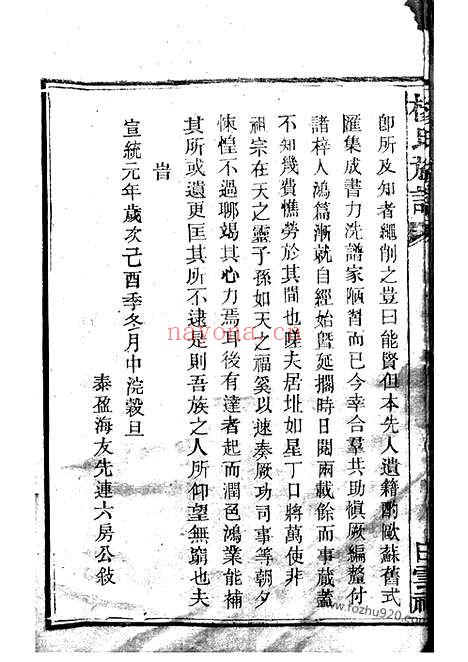 卽所及知者繩削之豈曰能賢但本先人遺籍酌歐蘇舊式
匯集成書力洗譜家陋習而已今幸合羣共助慎厥編釐付
諸梓人鴻篇漸就自經始曁延擱時日閱兩載餘而事蕆蓋
不知幾費憔勞於其間也嗟夫居址如星丁口將萬使非
祖宗在天之靈子孫如天之福奚以速奏厥功司事等朝夕
悚惶不過聊竭其心力焉耳後有達者起而潤色鴻業能補
其所或遺更匡其所不逮是則吾族之人所仰望無窮也夫
旹
宣統元年歲次己酉季冬月中浣穀旦
泰盈海友先連六房公敘
楊氏族譜
白雲祠
nayona.cn
www.fozhu920.com